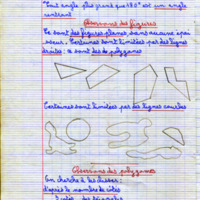 "Tout angle plus grand que 180° est un angle
rentrant
Observons des figures
Ce sont des figures planes sans aucune épai
sseur. Certaines sont limitées par des lignes
droites: ce sont des polygones.
Certaines sont limitées par des lignes courbes
Observons des polygones
On cherche à les classer:
d'après le nombre de côtés